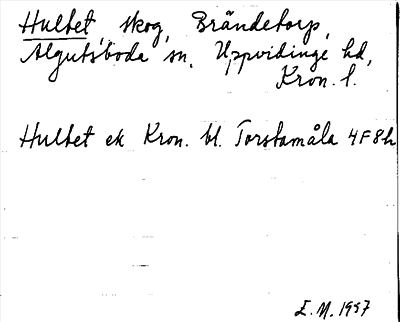 Hultet, skog, Brändetorp,
Algutsboda sn, Uppvidinge hd,
Kron. l.
Hultet ek Kron. bl. Torstamåla 4F8h
E. N. 1957